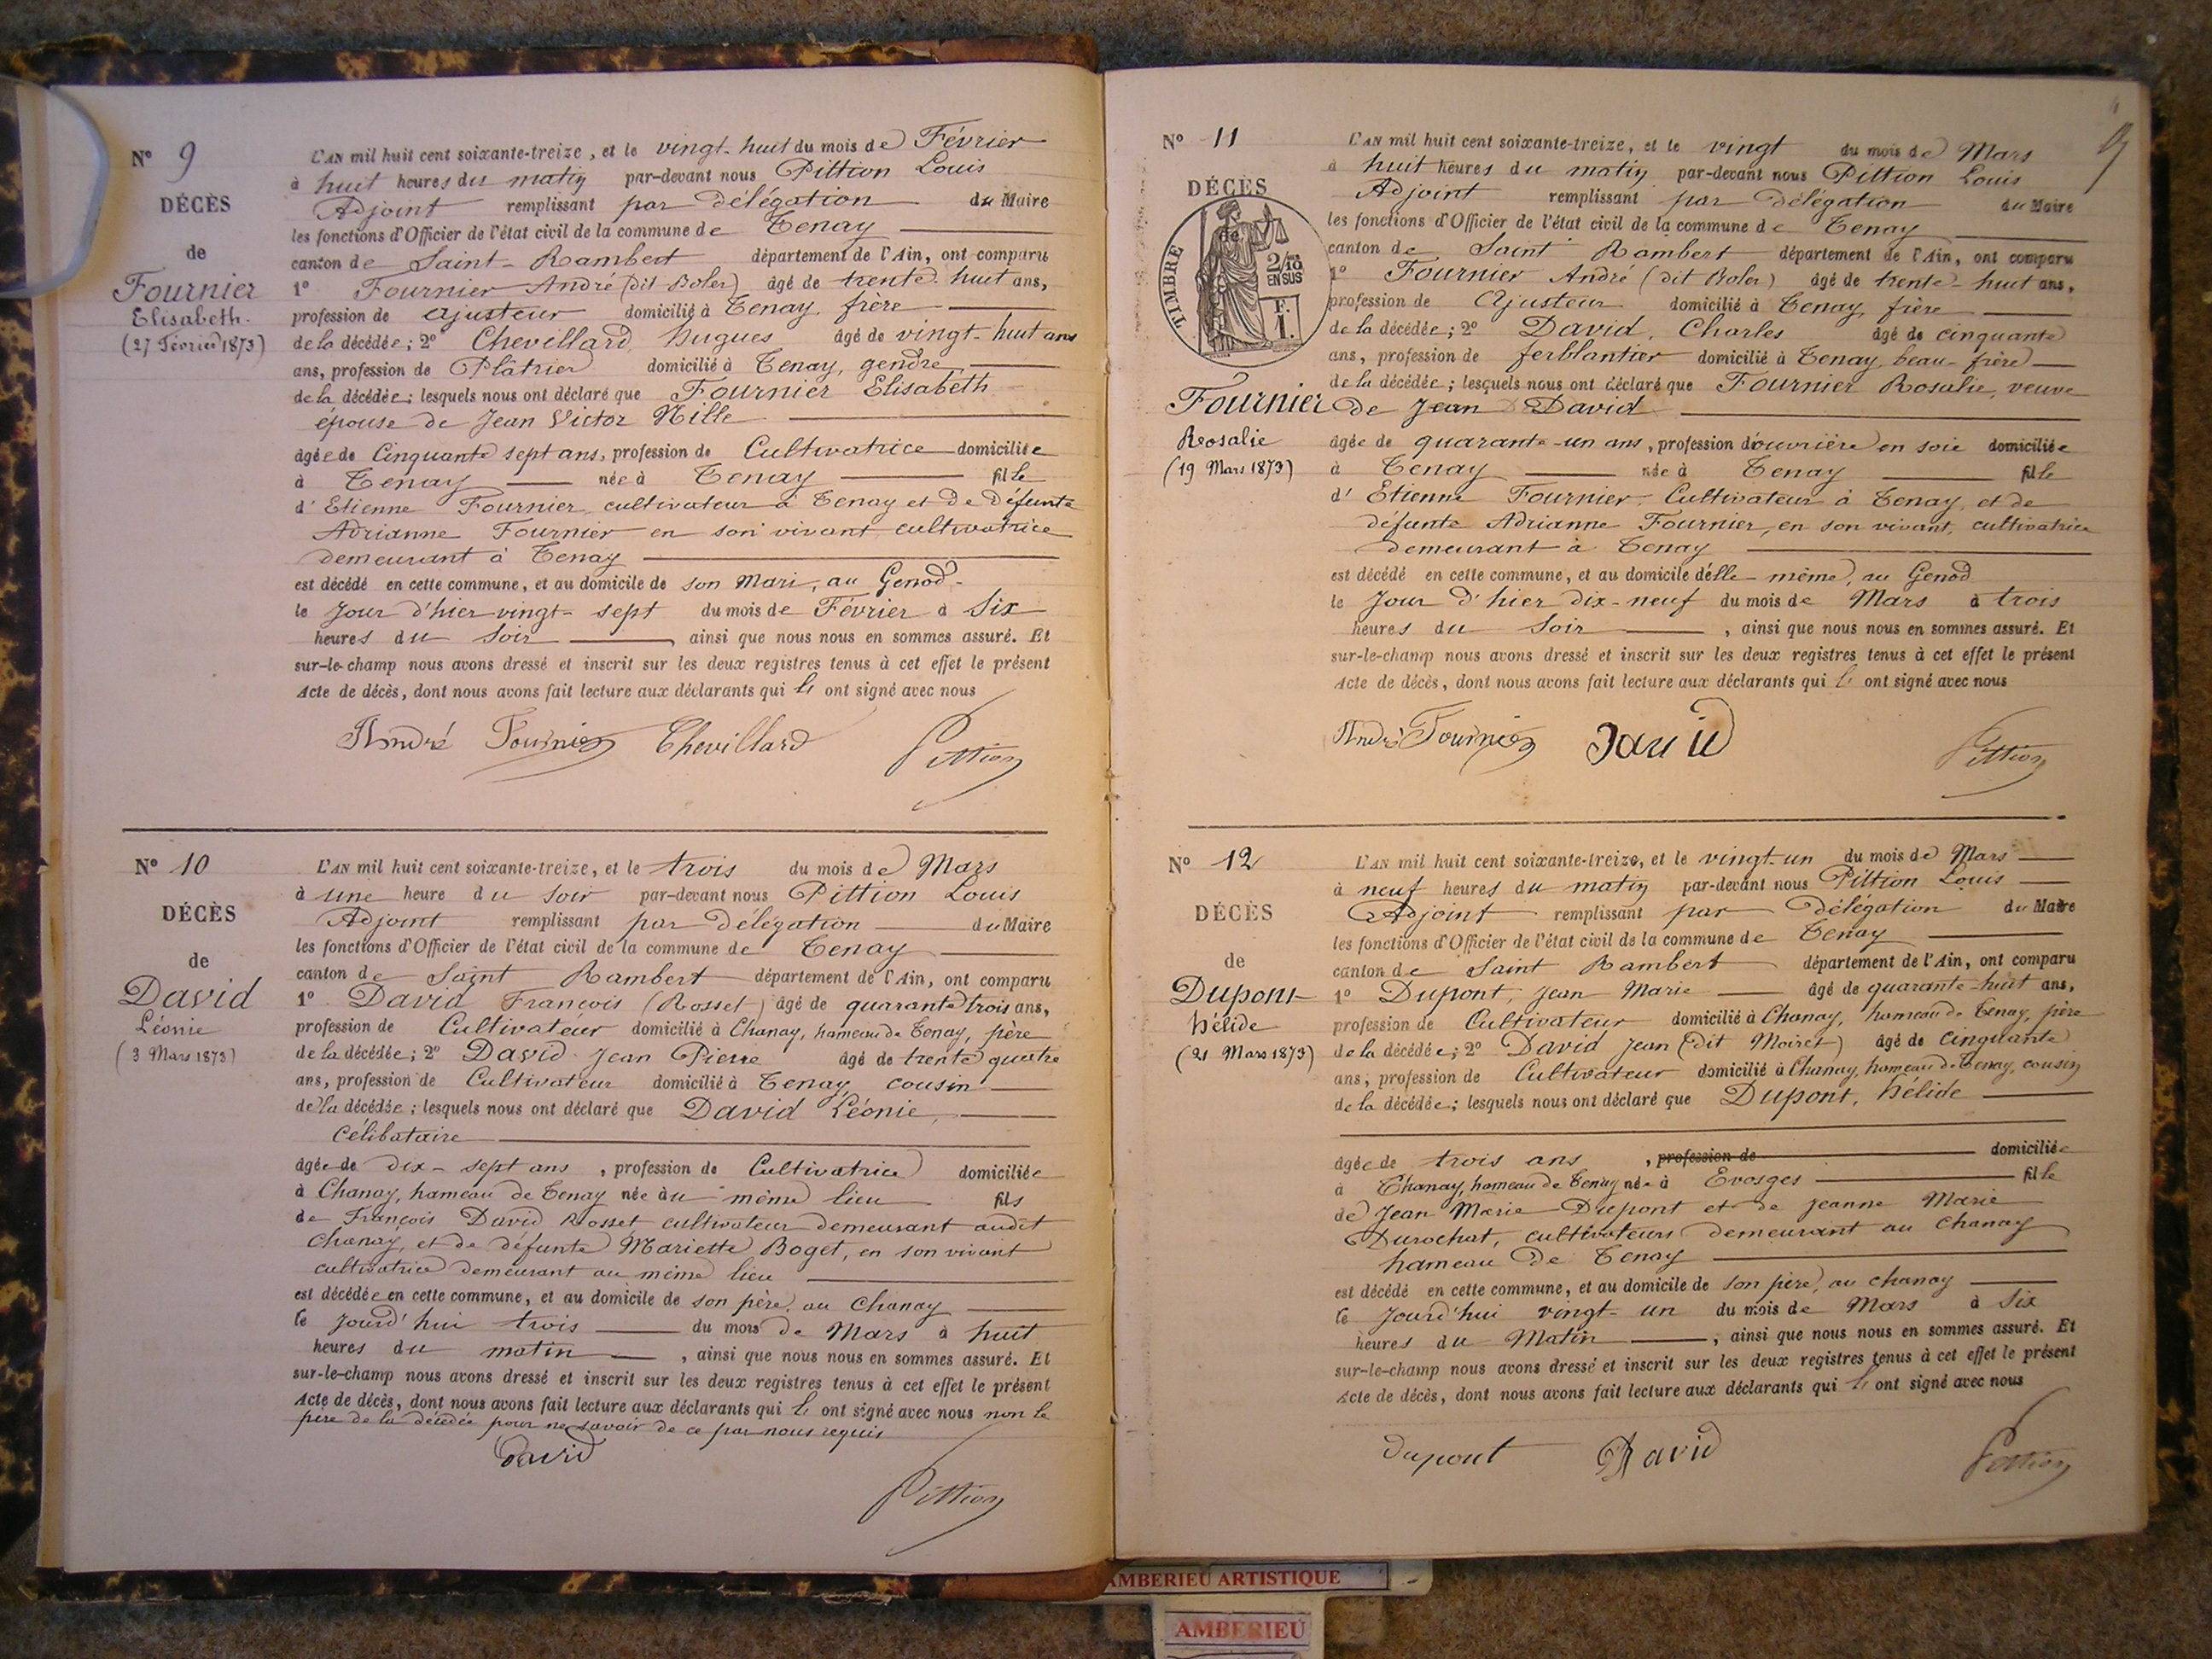 N° 9
DÉCÈS
de
Fournier
Elisabeth
(27 Février 1873)
L'AN mil huit cent soixante-treize, et le vingt-huit du mois de Février
à huit heures du matin par-devant nous Pittion Louis
Adjoint remplissant par délégation du Maire
les fonctions d'Officier de l'état civil de la commune de Tenay
canton de Saint-Rambert département de l'Ain, ont comparu
1° Fournier André (dit Boler) âgé de trente-huit ans,
profession de ajusteur domicilié à Tenay, frère
de la décédée; 2° Chevillard Hugues âgé de vingt-huit ans
ans, profession de Plâtrier domicilié à Tenay, gendre
de la décédée; lesquels nous ont déclaré que Fournier Elisabeth
épouse de Jean Victor Nille
âgée de Cinquante sept ans, profession de Cultivatrice domiciliée
à Tenay née à Tenay fille
d'Etienne Fournier cultivateur à Tenay et de défunte
Adrianne Fournier en son vivant cultivatrice
demeurant à Tenay
est décédé en cette commune, et au domicile de son Mari, au Genod
le Jour d'hier vingt-sept du mois de Février à Six
heures du Soir, ainsi que nous nous en sommes assuré. Et
sur-le-champ nous avons dressé et inscrit sur les deux registres tenus à cet effet le présent
Acte de décès, dont nous avons fait lecture aux déclarants qui ont signé avec nous
André Fournier Chevillard Pittion
N° 10
DÉCÈS
de
David
Léonie
(3 Mars 1873)
L'AN mil huit cent soixante-treize, et le trois du mois de Mars
à une heure du soir par-devant nous Pittion Louis
Adjoint remplissant par délégation du Maire
les fonctions d'Officier de l'état civil de la commune de Tenay
canton de Saint Rambert département de l'Ain, ont comparu
1° David François (Rosset) âgé de quarante trois ans,
profession de Cultivateur domicilié à Chanay, hameau de Tenay, père
de la décédée; 2° David Jean Pierre âgé de trente quatre
ans, profession de Cultivateur domicilié à Tenay, cousin
de la décédée; lesquels nous ont déclaré que David Léonie,
Célibataire
âgée de dix-sept ans, profession de Cultivatrice domiciliée
à Chanay, hameau de Tenay née au même lieu fils
de François David Rosset cultivateur demeurant audit
Chanay, et de défunte Mariette Boget, en son vivant
cultivatrice demeurant au même lieu
est décédée en cette commune, et au domicile de son père, au Chanay
le jourd'hui trois du mois de Mars à huit
heures du matin, ainsi que nous nous en sommes assuré. Et
sur-le-champ nous avons dressé et inscrit sur les deux registres tenus à cet effet le présent
Acte de décès, dont nous avons fait lecture aux déclarants qui ont signé avec nous non le
père de la décédée pour ne savoir de ce par nous requis
David
Pittion
N° 11
DÉCÈS
de
TIMBRE
2/10 EN SUS
F.
1.
Fournier
Rosalie
(19 Mars 1873)
L'AN mil huit cent soixante-treize, et le vingt du mois de Mars
à huit heures du matin par-devant nous Pittion Louis
Adjoint remplissant par délégation du Maire
les fonctions d'Officier de l'état civil de la commune de Tenay
canton de Saint Rambert département de l'Ain, ont comparu
1° Fournier André (dit Boler) âgé de trente-huit ans,
profession de Ajusteur domicilié à Tenay, frère
de la décédée; 2° David, Charles âgé de cinquante
ans, profession de ferblantier domicilié à Tenay, beau-frère
de la décédée; lesquels nous ont déclaré que Fournier Rosalie, veuve
de Jean David
âgée de quarante-un ans, profession d'ouvrière en soie domiciliée
à Tenay née à Tenay fille
d'Etienne Fournier, Cultivateur à Tenay, et de
défunte Adrianne Fournier, en son vivant, cultivatrice
demeurant à Tenay
est décédé en cette commune, et au domicile d'elle-même, au Genod
le Jour d'hier dix-neuf du mois de Mars à trois
heures du Soir, ainsi que nous nous en sommes assuré. Et
sur-le-champ nous avons dressé et inscrit sur les deux registres tenus à cet effet le présent
Acte de décès, dont nous avons fait lecture aux déclarants qui ont signé avec nous
André Fournier David Pittion
N° 12
DÉCÈS
de
Dupont
hélide
(21 Mars 1873)
L'AN mil huit cent soixante-treize, et le vingt-un du mois de Mars
à neuf heures du matin par-devant nous Pittion Louis
Adjoint remplissant par délégation du Maire
les fonctions d'Officier de l'état civil de la commune de Tenay
canton de Saint Rambert département de l'Ain, ont comparu
1° Dupont, Jean Marie âgé de quarante-huit ans,
profession de Cultivateur domicilié à Chanay, hameau de Tenay, père
de la décédée; 2° David Jean (dit Moiret) âgé de cinquante
ans, profession de Cultivateur domicilié à Chanay, hameau de Tenay, cousin
de la décédée; lesquels nous ont déclaré que Dupont, hélide
âgée de trois ans, profession de domiciliée
à Chanay, hameau de Tenay née à Evosges fille
de Jean Marie Dupont et de Jeanne Marie
Durochat, cultivateurs demeurant au Chanay
hameau de Tenay
est décédé en cette commune, et au domicile de son père, au Chanay
le Jourd'hui vingt-un du mois de Mars à Six
heures du Matin, ainsi que nous nous en sommes assuré. Et
sur-le-champ nous avons dressé et inscrit sur les deux registres tenus à cet effet le présent
Acte de décès, dont nous avons fait lecture aux déclarants qui ont signé avec nous
Dupont David Pittion
AMBERIEU ARTISTIQUE
AMBERIEU